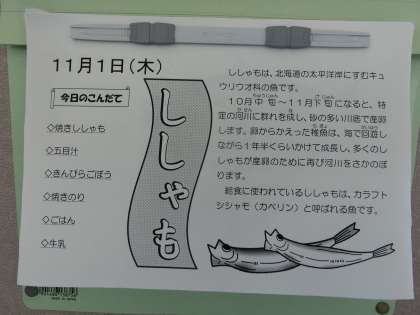 11月1日(木)
今日のこんだて
◇焼きししゃも
◇五目汁
◇きんぴらごぼう
◇焼きのり
◇ごはん
◇牛乳
ししゃも
ししゃもは、北海道の太平洋岸にすむキュ
ウリウオ科の魚です。
10月中旬～11月下旬になると、特
定の河川に群れを成し、砂の多い川底で産卵
します。卵からかえった稚魚は、海で回遊し
ながら1年半くらいかけて成長し、多くのし
しゃもが産卵のために再び河川をさかのぼ
ります。
給食に使われているししゃもは、カラフト
シシャモ(カペリン)と呼ばれる魚です。